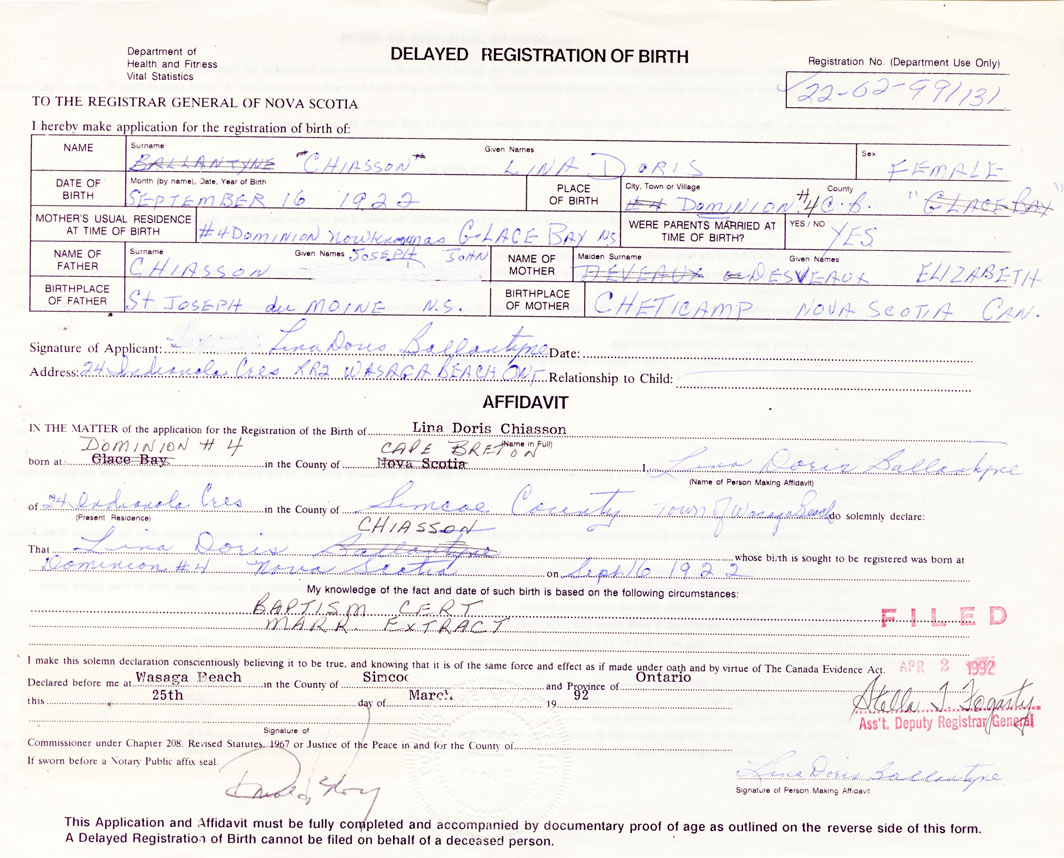 DELAYED REGISTRATION OF BIRTH
Department of
Health and Fitness
Vital Statistics
Registration No. (Department Use Only)
22-02-99/131
TO THE REGISTRAR GENERAL OF NOVA SCOTIA
I hereby make application for the registration of birth of:
NAME Surname BALLANTYNE "CHIASSON" Given Names LINA DORIS Sex FEMALE
DATE OF BIRTH Month (by name), Date, Year of Birth SEPTEMBER 16 1922 PLACE OF BIRTH City, Town or Village #4 DOMINION #4 County C.B. "GLACE BAY"
MOTHER'S USUAL RESIDENCE AT TIME OF BIRTH #4 Dominion now known as GLACE BAY NS WERE PARENTS MARRIED AT TIME OF BIRTH? YES / NO YES
NAME OF FATHER Surname CHIASSON Given Names JOSEPH JOHN NAME OF MOTHER Maiden Surname DEVEAUX DESVEAUX Given Names ELIZABETH
BIRTHPLACE OF FATHER ST JOSEPH du MOINE N.S. BIRTHPLACE OF MOTHER CHETICAMP NOVA SCOTIA CAN.
Signature of Applicant: Lina Doris Ballantyne Date:
Address: 24 Indianola Cres RR2 WASAGA BEACH ONT Relationship to Child:
AFFIDAVIT
IN THE MATTER of the application for the Registration of the Birth of Lina Doris Chiasson
(Name in Full)
DOMINION #4 CAPE BRETON
born at Glace Bay in the County of Nova Scotia I, Lina Doris Ballantyne
(Name of Person Making Affidavit)
of 24 Indianola Cres in the County of Simcoe County Town of Wasaga Beach do solemnly declare:
(Present Residence)
CHIASSON
That Lina Doris Ballantyne whose birth is sought to be registered was born at
Dominion #4 Nova Scotia on Sept 16 1922
My knowledge of the fact and date of such birth is based on the following circumstances:
BAPTISM CERT
MARR. EXTRACT
FILED
I make this solemn declaration conscientiously believing it to be true, and knowing that it is of the same force and effect as if made under oath and by virtue of The Canada Evidence Act.
APR 2 1992
Declared before me at Wasaga Beach in the County of Simcoe and Province of Ontario
this 25th day of March 19 92
Stella T Fogarty
Ass't. Deputy Registrar General
Signature of
Commissioner under Chapter 208, Revised Statutes, 1967 or Justice of the Peace in and for the County of
If sworn before a Notary Public affix seal.
Lina Doris Ballantyne
Signature of Person Making Affidavit
This Application and Affidavit must be fully completed and accompanied by documentary proof of age as outlined on the reverse side of this form.
A Delayed Registration of Birth cannot be filed on behalf of a deceased person.